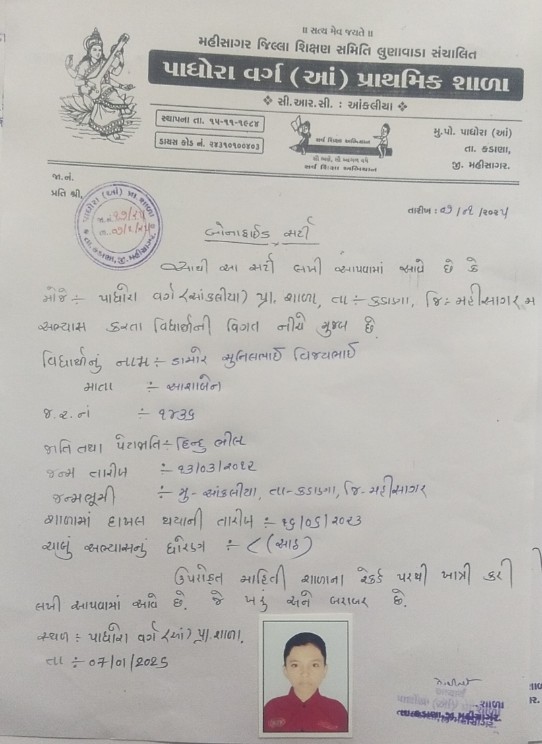 ॥ સત્ય મેવ જયતે ॥
મહીસાગર જિલ્લા શિક્ષણ સમિતિ લુણાવાડા સંચાલિત
પાધોરા વર્ગ (આં) પ્રાથમિક શાળા
સી.આર.સી. : આંકલીયા
સ્થાપના તા. ૧૫-૧૧-૧૯૮૪
ડાયસ કોડ નં. ૨૪૩૧૦૧૦૦૪૦૩
સર્વ શિક્ષા અભિયાન
સર્વ શિક્ષા અભિયાન
મુ.પો. પાધોરા (આં)
તા. કડાણા,
જી. મહીસાગર.
જા.નં.
પ્રતિ શ્રી,
તારીખ : ૦૭/૦૧/૨૦૨૫
બોનાફાઈડ સર્ટી
આથી આ સર્ટી લખી આપવામાં આવે છે કે
મોજે ÷ પાધોરા વર્ગ (આંકલીયા) પ્રા. શાળા, તા ÷ કડાણા, જિ ÷ મહીસાગરમ
અભ્યાસ કરતા વિદ્યાર્થીની વિગત નીચે મુજબ છે.
વિદ્યાર્થીનું નામ ÷ ડામોર વિજયભાઈ
માતા ÷ આશાબેન
જ.ર.નં ÷ ૧૪૩૬
જાતિ તથા પેટાજાતિ ÷ હિન્દુ ભીલ
જન્મ તારીખ ÷ ૧૩/૦૩/૨૦૧૨
જન્મભૂમી ÷ મુ- આંકલીયા, તા- કડાણા, જિ- મહીસાગર
શાળામાં દાખલ થયાની તારીખ ÷ ૧૬/૦૬/૨૦૨૩
ચાલું અભ્યાસનું ધોરણ ÷ ૮ (આઠ)
ઉપરોક્ત માહિતી શાળાના રેકર્ડ પરથી ખાત્રી કરી
લખી આપવામાં આવે છે. જે ખરું અને બરાબર છે.
સ્થળ : પાધોરા વર્ગ (આં) પ્રા. શાળા.
તા ÷ 07/01/2025